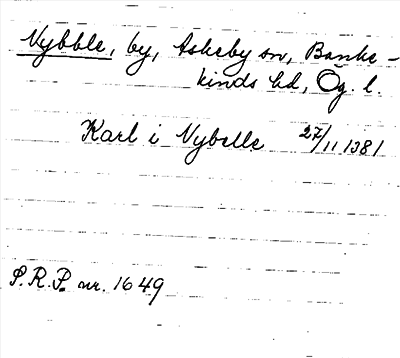 Nybble, by, Askeby sn, Banke-
kinds hd, Ög. l.
Karl i Nybelle 27/11 1381
S.R.P. nr. 1649